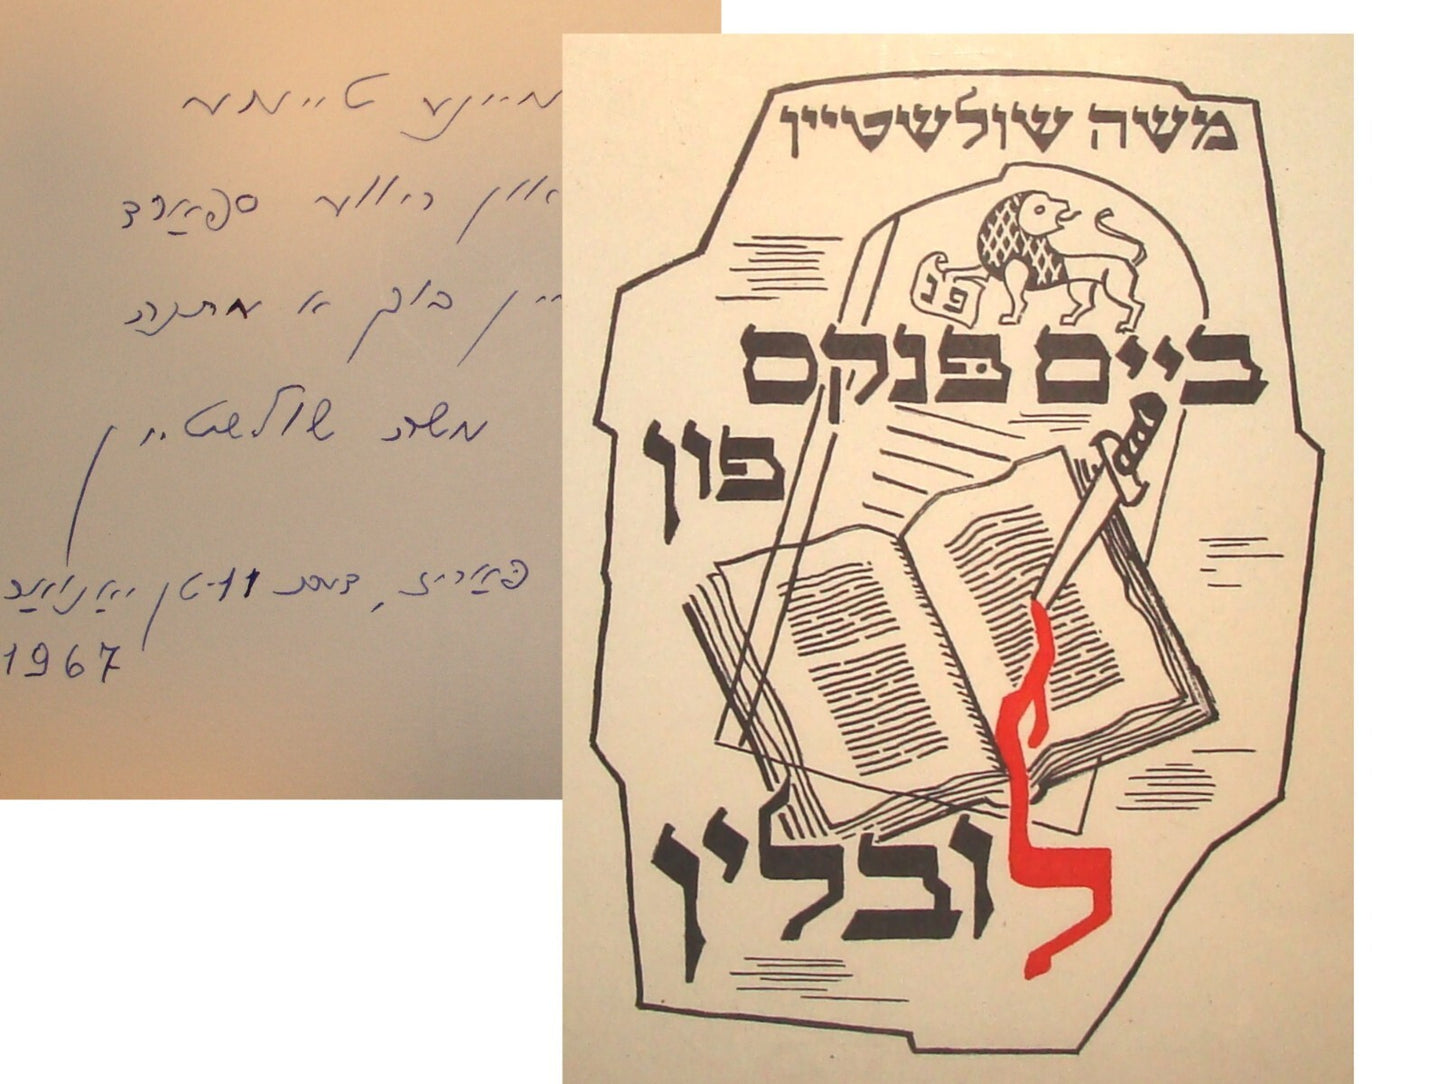 מיינע טייערע
ריווע ספאַרד
יין בוך א מתנה
משה שולשטיין
פּאַריז, דעם 11-טן יאַנואַר
1967
משה שולשטיין
פנ
ביים פּנקס
פון
לובלין